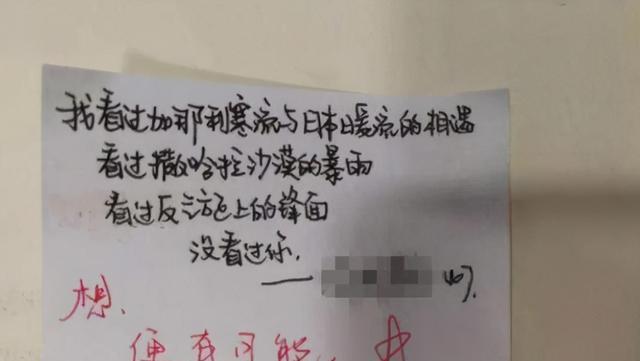 我看过加那利寒流与日本暖流的相遇
看过撒哈拉沙漠的暴雨
看过反气旋上的锋面
没看过你.
——
想.
便有可能